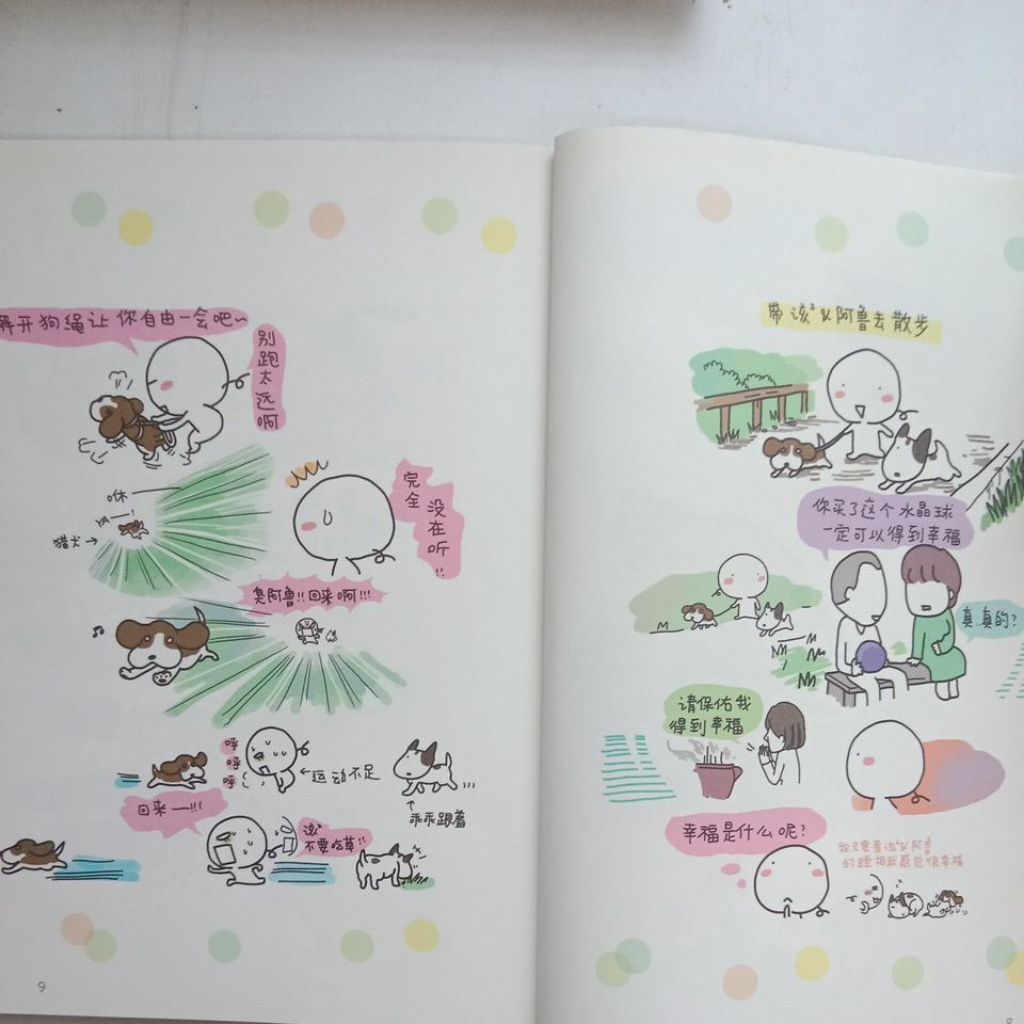 带该²&阿鲁去散步
你买了这个水晶球
一定可以得到幸福
真真的?
请保佑我
得到幸福
幸福是什么呢?
我只要看该²&阿鲁
的睡相就感觉很幸福
8
解开狗绳让你自由一会吧~
别跑太远啊
咻
猎犬→
完全
没在听!!
臭阿鲁!!回来啊!!!
呼
呼
呼
←运动不足
乖乖跟着
回来——!!!
该²
不要吃草!!
9